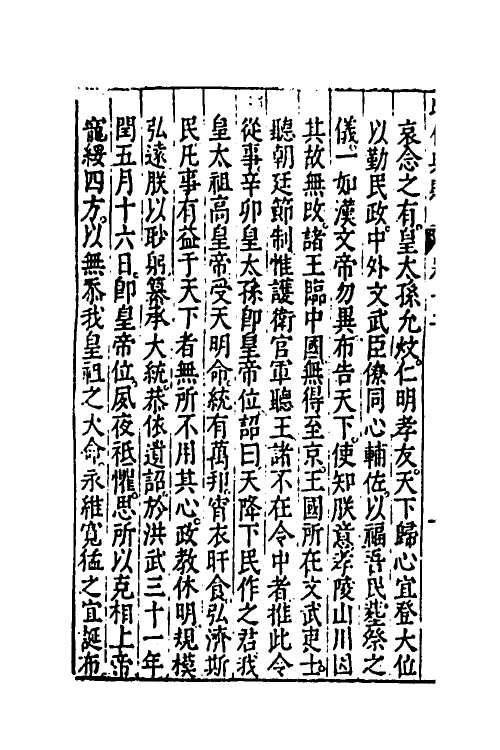 哀念之有皇太孫允炆仁明孝友天下歸心宜登大位
以勤民政中外文武臣僚同心輔佐以福吾民塟祭之
儀一如漢文帝勿異布告天下使知朕意孝陵山川因
其故無改諸王臨中國無得至京王國所在文武吏士
聽朝廷節制惟護衛官軍聽王諸不在令中者推此令
從事辛卯皇太孫卽皇帝位詔曰天降下民作之君我
皇太祖高皇帝受天明命統有萬邦宵衣旰食弘濟斯
民凡事有益于天下者無所不用其心政教休明規模
弘遠朕以眇躬纂承大統恭依遺詔於洪武三十一年
閏五月十六日卽皇帝位夙夜祗懼思所以克相上帝
寵綏四方以無忝我皇祖之大命永維寛猛之宜誕布